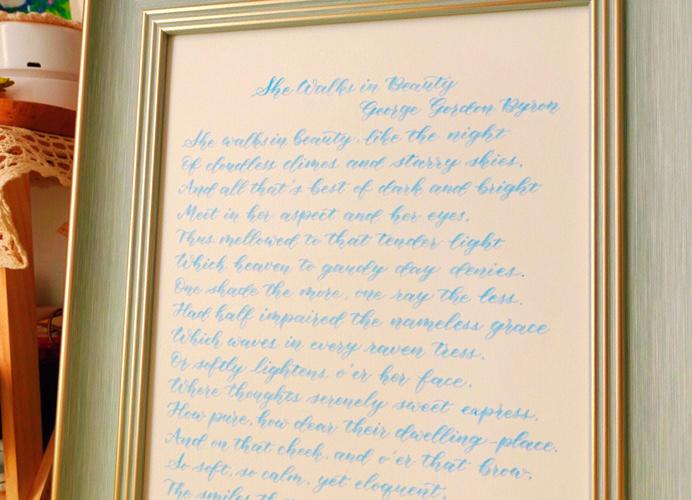 She Walks in Beauty
George Gordon Byron
She walks in beauty, like the night
Of cloudless climes and starry skies,
And all that's best of dark and bright
Meet in her aspect and her eyes,
Thus mellowed to that tender light
Which heaven to gaudy day denies.
One shade the more, one ray the less,
Had half impaired the nameless grace
Which waves in every raven tress,
Or softly lightens o'er her face,
Where thoughts serenely sweet express,
How pure, how dear their dwelling-place.
And on that cheek, and o'er that brow,
So soft, so calm, yet eloquent,
The smiles